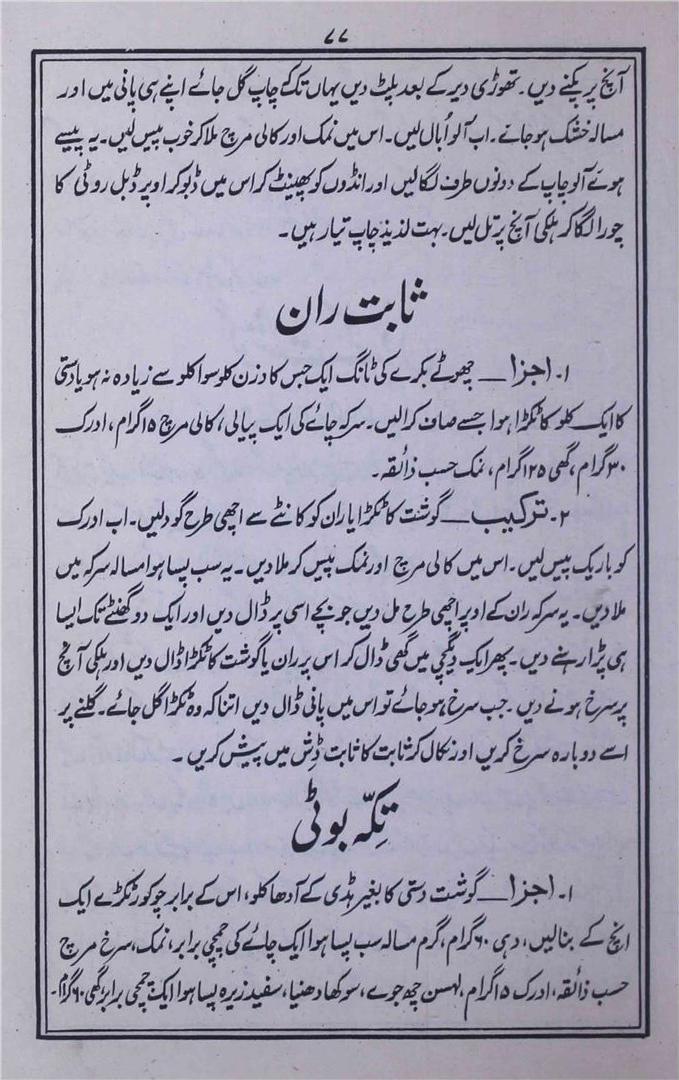 ۷۷
آنچ پر پکنے دیں۔ تھوڑی دیر کے بعد پلٹ دیں یہاں تک کے چاپ گل جائے اپنے ہی پانی میں اور
مسالہ خشک ہو جائے۔ اب آلو اُبال لیں۔ اس میں نمک اور کالی مرچ ملا کر خوب پیس لیں۔ یہ پیسے
ہوئے آلو چاپ کے دونوں طرف لگا لیں اور انڈوں کو پھینٹ کر اس میں ڈبو کر اوپر ڈبل روٹی کا
چورا لگا کر ہلکی آنچ پر تل لیں۔ بہت لذیذ چاپ تیار ہیں۔
ثابت ران
۱۔ اجزا — چھوٹے بکرے کی ٹانگ ایک جس کا وزن کلو سوا کلو سے زیادہ نہ ہو یا دستی
کا ایک کلو کا ٹکڑا ہو جسے صاف کرالیں۔ سرکہ چائے کی ایک پیالی، کالی مرچ ۱۵ گرام، ادرک
۳۰ گرام، گھی ۱۲۵ گرام، نمک حسب ذائقہ۔
۲۔ ترکیب — گوشت کا ٹکڑا یا ران کو کانٹے سے اچھی طرح گود لیں۔ اب ادرک
کو باریک پیس لیں۔ اس میں کالی مرچ اور نمک پیس کر ملا دیں۔ یہ سب پسا ہوا مسالہ سرکہ میں
ملا دیں۔ یہ سرکہ ران کے اوپر اچھی طرح مل دیں جو بچے اسی پر ڈال دیں اور ایک دو گھنٹے تک ایسا
ہی پڑا رہنے دیں۔ پھر ایک دیگچی میں گھی ڈال کر اس پر ران یا گوشت کا ٹکڑا ڈال دیں اور ہلکی آنچ
پر سرخ ہونے دیں۔ جب سرخ ہو جائے تو اس میں پانی ڈال دیں اتنا کہ وہ ٹکڑا گل جائے۔ گلنے پر
اسے دوبارہ سرخ کریں اور نکال کر ثابت کا ثابت ڈش میں پیش کریں۔
تِکّہ بوٹی
۱۔ اجزا — گوشت دستی کا بغیر ہڈی کے آدھا کلو، اس کے برابر چوکور ٹکڑے ایک
انچ کے بنالیں، دہی ۶۰ گرام، گرم مسالہ سب پسا ہوا ایک چائے کی چمچی برابر، نمک، سرخ مرچ
حسب ذائقہ، ادرک ۱۵ گرام، لہسن چھ جوے، سوکھا دھنیا، سفید زیرہ پسا ہوا ایک چمچی برابر گھی ۶۰ گرام۔